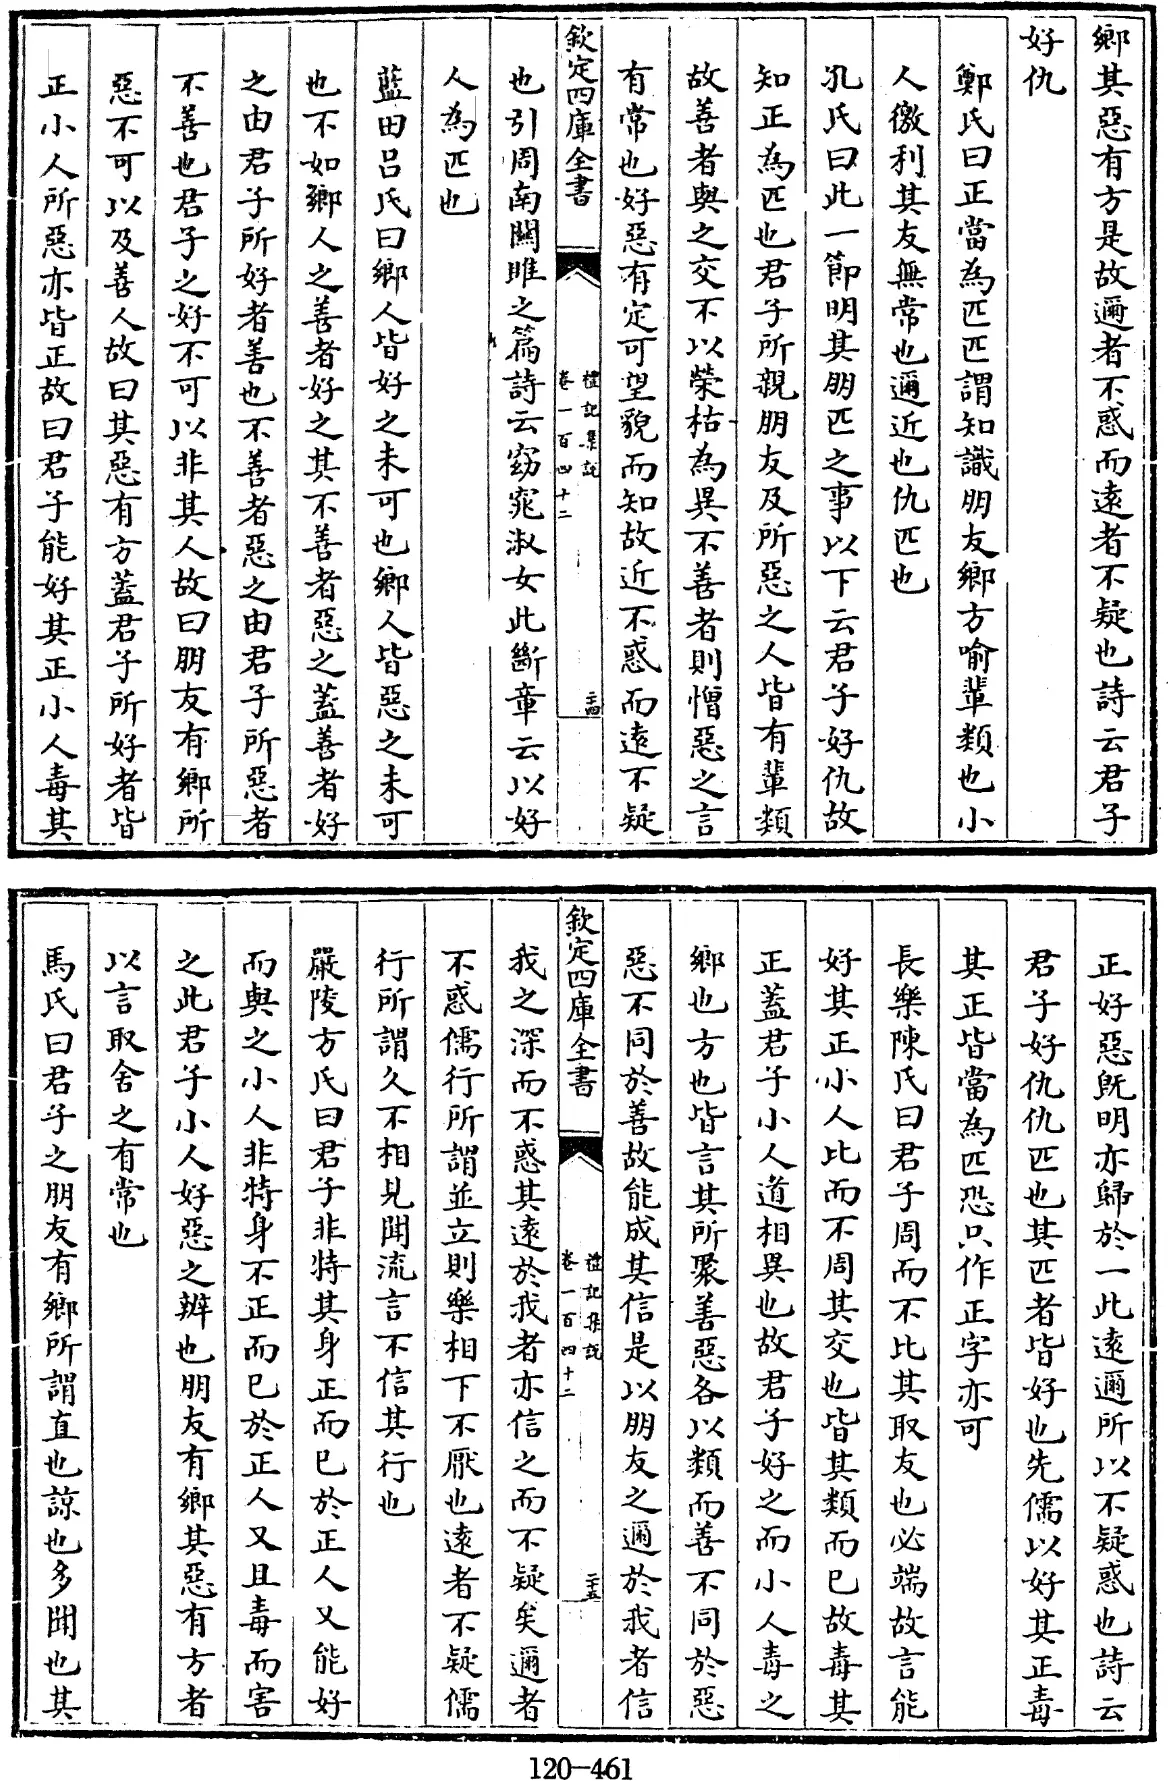 鄉其惡有方是故邇者不惑而遠者不疑也詩云君子
好仇
鄭氏曰正當為匹匹謂知識朋友鄉方喻輩類也小
人徼利其友無常也邇近也仇匹也
孔氏曰此一節明其朋匹之事以下云君子好仇故
知正為匹也君子所親朋友及所惡之人皆有輩類
故善者與之交不以榮枯為異不善者則憎惡之言
有常也好惡有定可望貌而知故近不惑而遠不疑
欽定四庫全書
禮記集說
卷一百四十二
二十四
也引周南關雎之篇詩云窈窕淑女此斷章云以好
人為匹也
藍田呂氏曰鄉人皆好之未可也鄉人皆惡之未可
也不如鄉人之善者好之其不善者惡之蓋善者好
之由君子所好者善也不善者惡之由君子所惡者
不善也君子之好不可以非其人故曰朋友有鄉所
惡不可以及善人故曰其惡有方蓋君子所好者皆
正小人所惡亦皆正故曰君子能好其正小人毒其
正好惡既明亦歸於一此遠邇所以不疑惑也詩云
君子好仇仇匹也其匹者皆好也先儒以好其正毒
其正皆當為匹恐只作正字亦可
長樂陳氏曰君子周而不比其取友也必端故言能
好其正小人比而不周其交也皆其類而已故毒其
正蓋君子小人道相異也故君子好之而小人毒之
鄉也方也皆言其所聚善惡各以類而善不同於惡
惡不同於善故能成其信是以朋友之邇於我者信
欽定四庫全書
禮記集說
卷一百四十二
二十五
我之深而不惑其遠於我者亦信之而不疑矣邇者
不惑儒行所謂並立則樂相下不厭也遠者不疑儒
行所謂久不相見聞流言不信其行也
嚴陵方氏曰君子非特其身正而已於正人又能好
而與之小人非特身不正而已於正人又且毒而害
之此君子小人好惡之辨也朋友有鄉其惡有方者
以言取舍之有常也
馬氏曰君子之朋友有鄉所謂直也諒也多聞也其
120-461